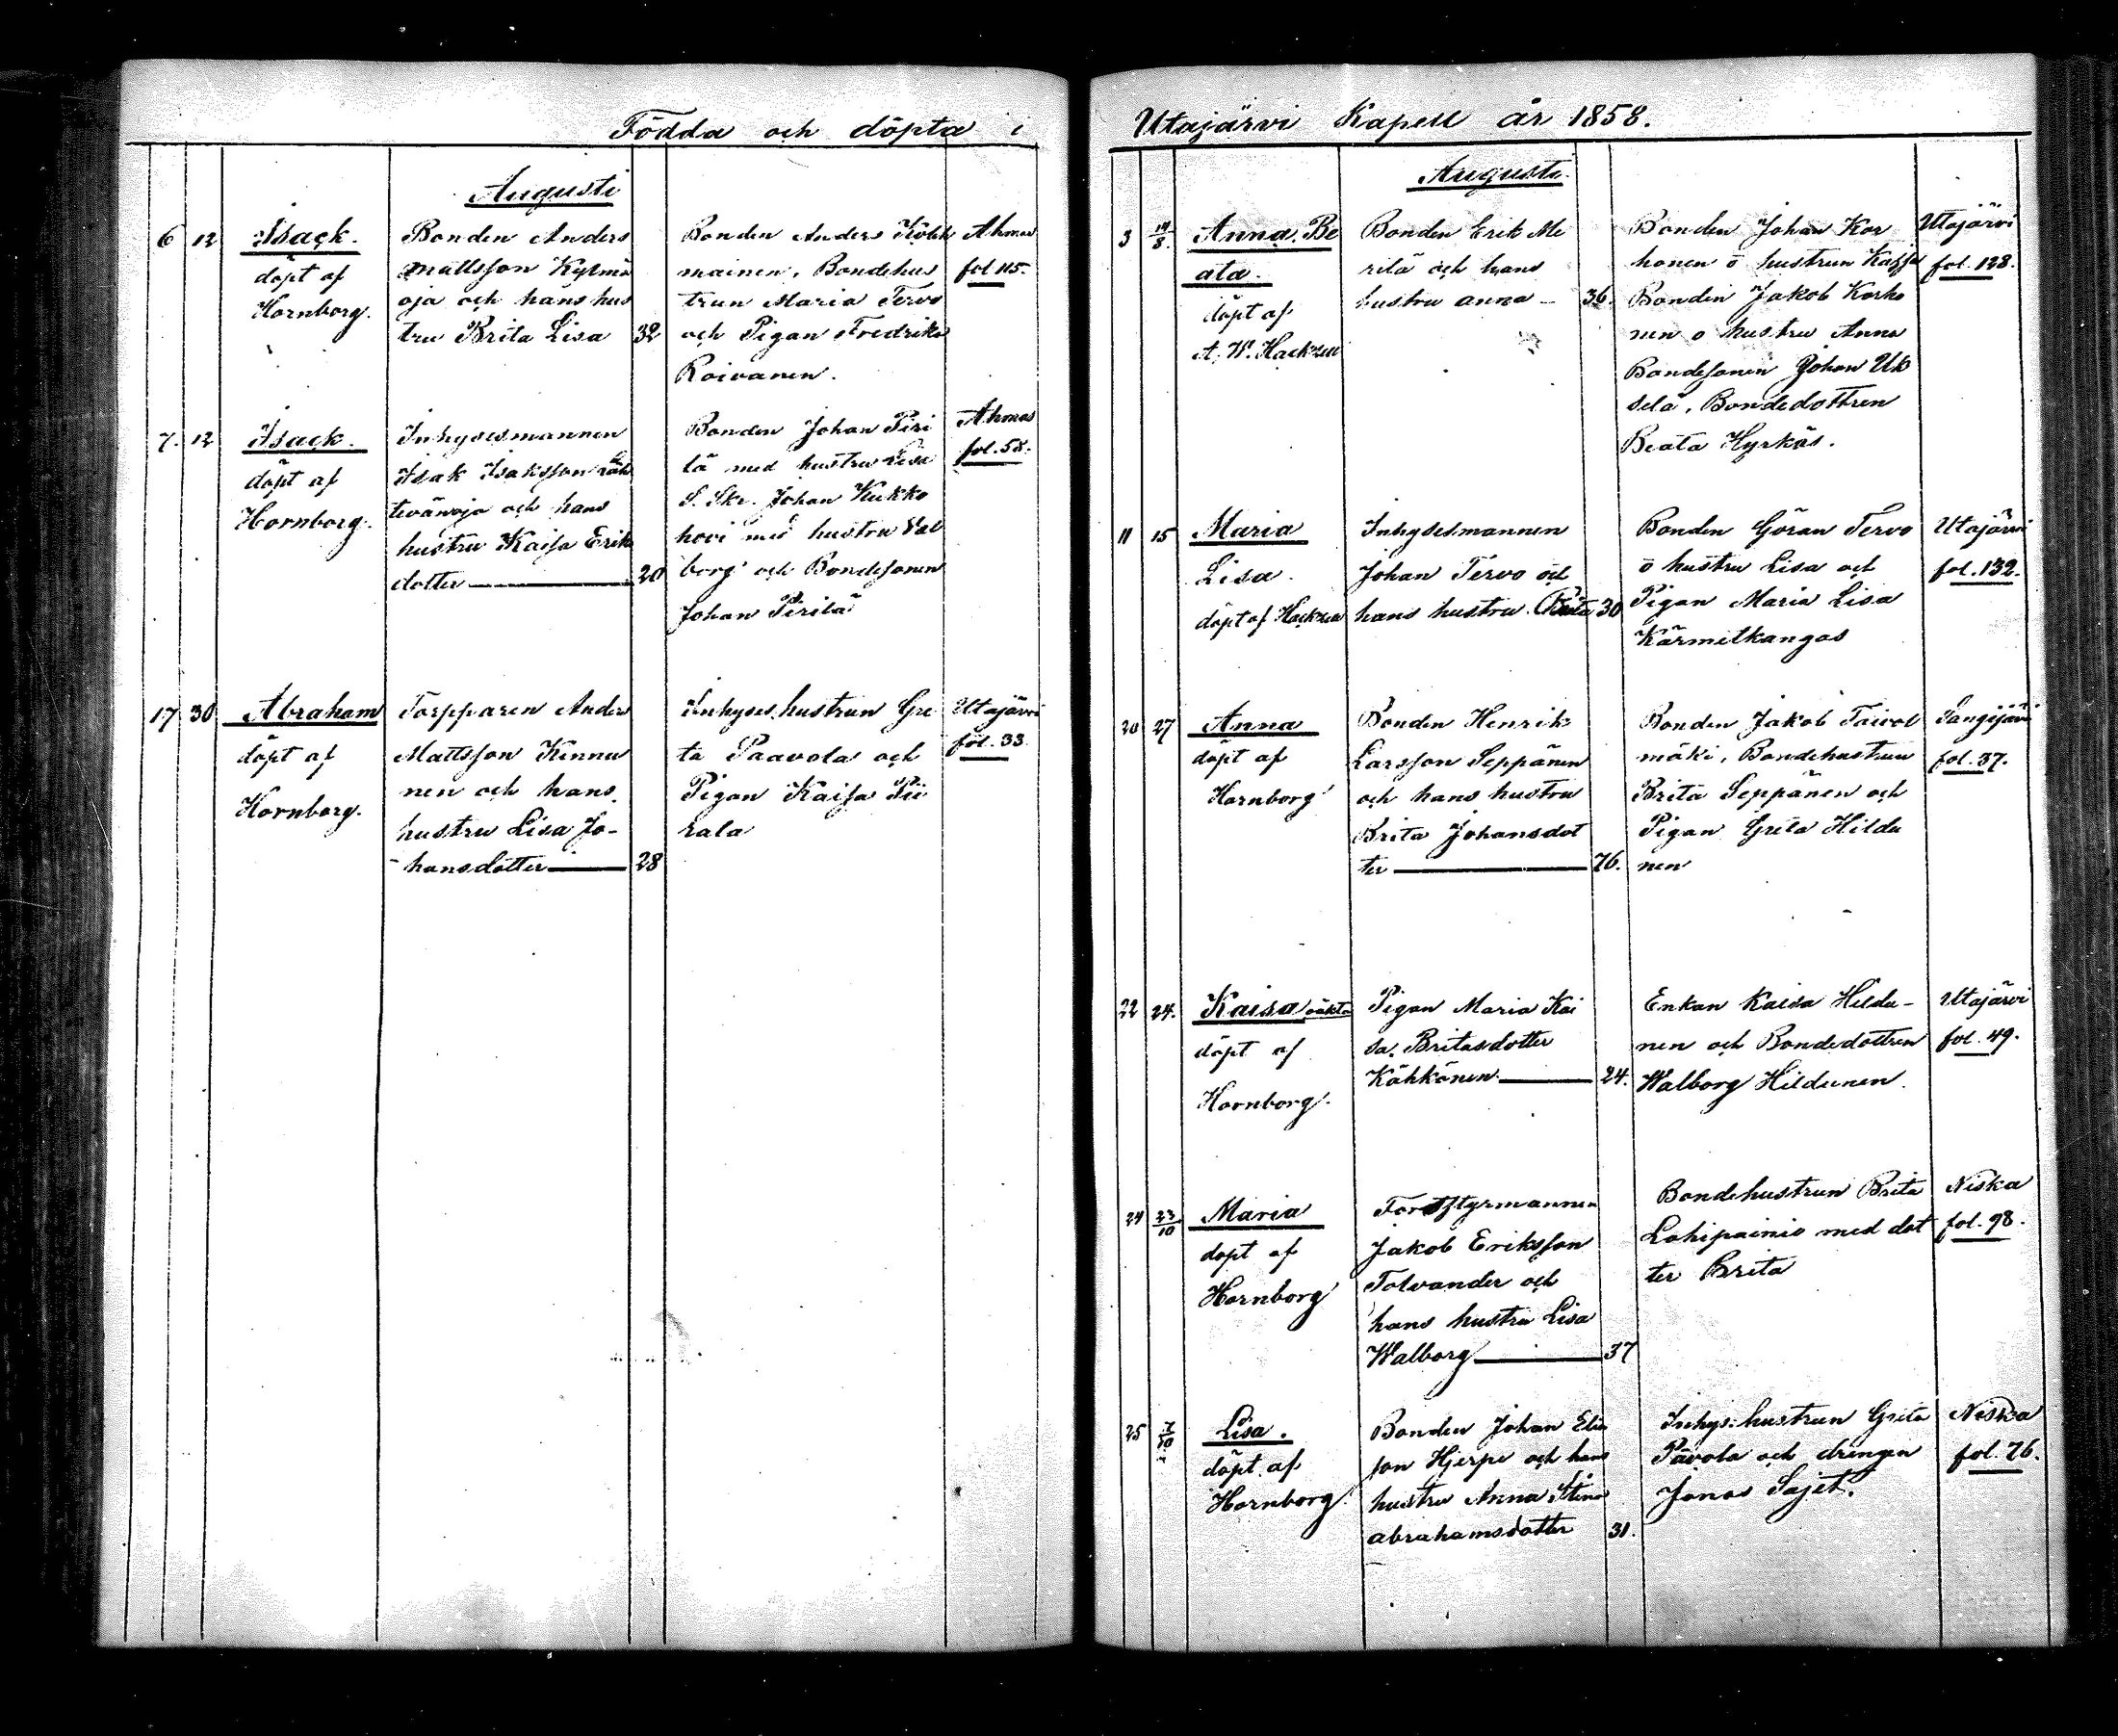 Födda och döpta i
Augusti
6 12 Isack.
döpt af
Hornborg.
Bonden Anders
Mattsson Kylmä
oja och hans hus
tru Brita Lisa 32
Bonden Anders
mainen, Bondehus
trun Maria Tervo
och Pigan Fredrika
Roivanen.
Ahmas
fol 115.
7. 12 Isack.
döpt af
Hornborg.
Inhysesmannen
Isak Isaksson
och hans
hustru Kaisa Eriks
dotter 20
Bonden Johan Piri
lä med hustru Lisa
S. Skr. Johan Kukko
hovi med hustru Val
borg och Bondesonen
Johan Pirilä
Ahmas
fol. 58.
17 30 Abraham
döpt af
Hornborg.
Torpparen Anders
Mattsson Kinnu
nen och hans
hustru Lisa Jo-
hansdotter 28
Inhyses hustrun Gre
ta Paavola och
Pigan Kaisa Pii
rala
Utajärvi
fol. 33
Utajärvi Kapell år 1858.
Augusti.
3 14/8. Anna Be
ata.
döpt af
A. W. Hackzell
Bonden Erik Me
rilä och hans
hustru Anna 36.
Bonden Johan Kor
honen o hustrun Kajsa
Bonden Jakob Korho
nen o hustru Anna
Bondesonen Johan Uk
Bondedottren
Beata Hyrkäs.
Utajärvi
fol. 128.
11 15 Maria
Lisa.
döpt af Hackzell
Inhysesmannen
Johan Tervo och
hans hustru 30
Bonden Göran Tervo
o hustru Lisa och
Pigan Maria Lisa
Kärmetkangas
Utajärvi
fol. 132.
20 27 Anna
döpt af
Hornborg
Bonden Henrik
Larsson Seppänen
och hans hustru
Brita Johansdot
ter 76.
Bonden Jakob Taivol
mäki, Bondehustrun
Brita Seppänen och
Pigan Greta Hildu
nen
Sangijärvi
fol. 37.
22 24. Kaisa oäkta
döpt af
Hornborg.
Pigan Maria Kai
sa Britasdotter
Kähkönen. 24.
Enkan Kaisa Hildu-
nen och Bondedottren
Walborg Hildunen.
Utajärvi
fol. 49.
24 23/10 Maria
döpt af
Hornborg
Forsstyrmannen
Jakob Eriksson
Tolvander och
hans hustru Lisa
Walborg 37
Bondehustrun Brita
Lohipainio med dot
ter Brita
Niska
fol. 98.
25 Lisa.
döpt af
Hornborg.
Bonden Johan Elia
son Hjerpe och hans
hustru Anna Stina
Abrahamsdotter 31.
Inhys: hustrun Greta
Pävola och drengen
Jonas Sajet.
Niska
fol. 76.